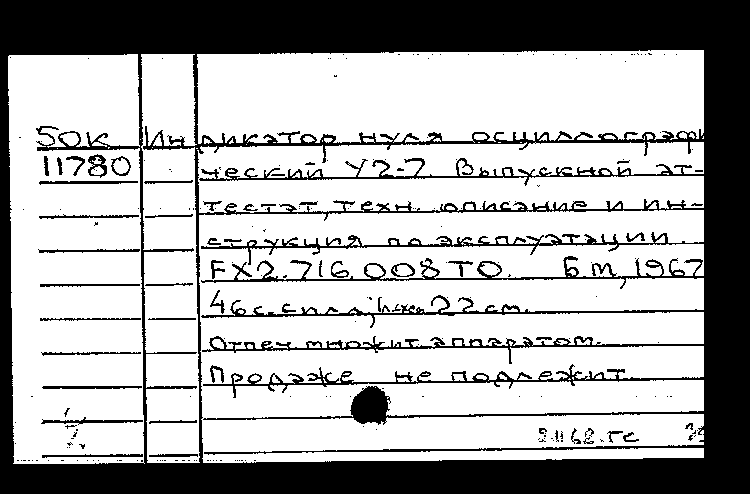 50К Индикатор нуля осциллографи
11780 ческий У2-7. Выпускной ат-
тестат, техн. описание и ин-
струкция по эксплуатации.
ЕХ2.716.008 ТО. Б.м., 1967
46 с. с илл.; 22 см.
Отпеч. множит. аппаратом.
Продаже не подлежит.